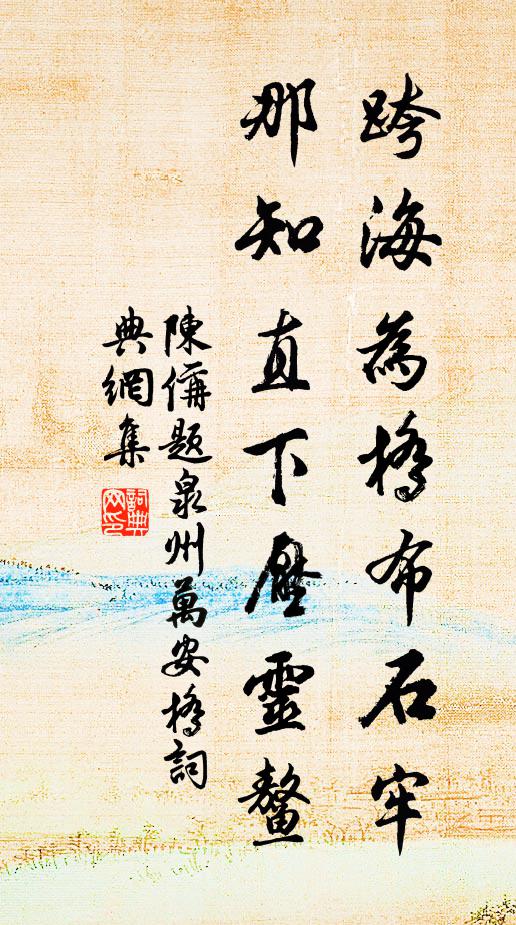 跨海為橋布石牢
那知直下壓靈鰲
陳偁題泉州萬安橋詞
典網集
詞典網印